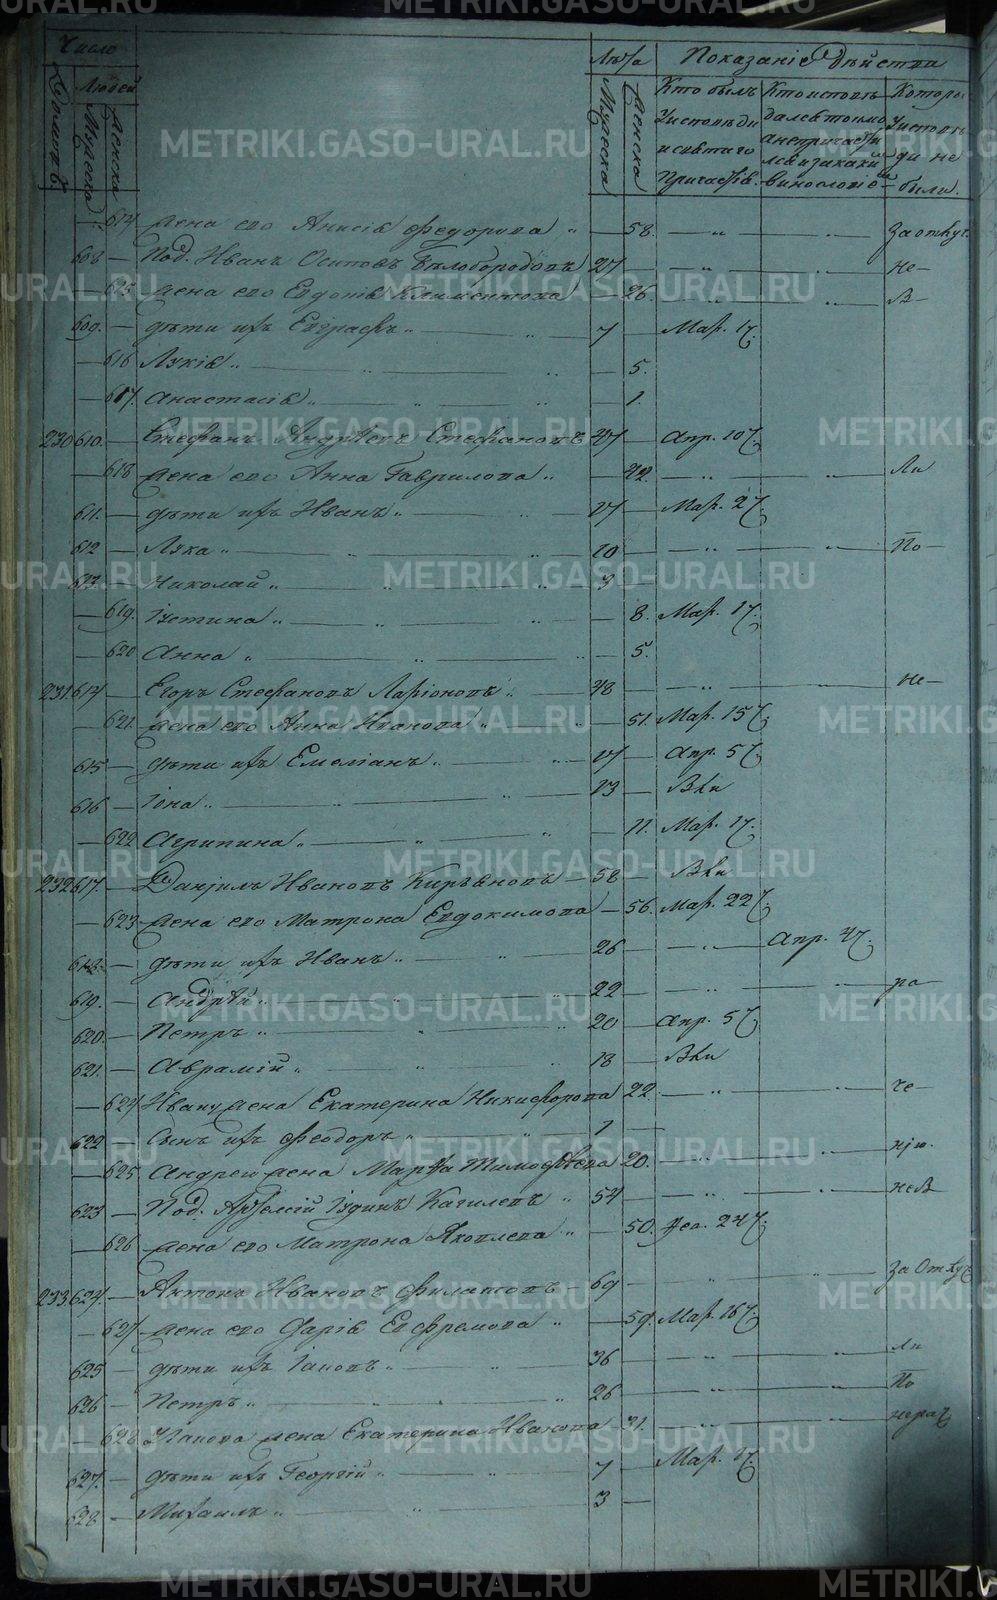 Число Лѣта Показаніе Дѣйства
Домовъ Людей Мужеска Женска Мужеска Женска
Кто былъ у исповѣди и святаго причастія.
Которые у исповѣди не были.
614 жена его Анисія Федорова 58. За отлуч.
608 Под. Иванъ Осиповъ Бѣлобородовъ 27 не
615 жена его Евдокія Климентова 26. В
609. дѣти ихъ Евграфъ 7 Мар. 17.
616 Лукія 5.
617. Анастасія 1.
230 610. Стефанъ Андреевъ Стефановъ 47 Апр. 10
618 жена его Анна Гаврилова 42. Ли
611. дѣти ихъ Иванъ 17 Мар. 27.
612 Лука 10 По
613. Николай 3
619. Устина 8. Мар. 17.
620 Анна 5.
231. 614 Егоръ Стефановъ Ларіоновъ 48 не
621. жена его Анна Иванова 51. Мар. 15
615 дѣти ихъ Емеліанъ 17 Апр. 5
616 Іона 13
622 Агрипина 11. Мар. 17.
232 617 Даніилъ Ивановъ Кирьяновъ 58
623 жена его Матрона Евдокимова 56. Мар. 22
618 дѣти ихъ Иванъ 26 Апр. 4
619. Андрей 22 ра
620. Петръ 20 Апр. 5
621. Аврамій 18
624 Ивану жена Екатерина Никифорова 22.
622 Сынъ ихъ Феодоръ 1
625 Андрею жена Марфа Тимофѣева 20. нію.
623 Под. 54
626 жена его Матрона Яковлева 50. Фев. 24
233. 624. Антонъ Ивановъ Филатовъ 69 За Отлуч
627 жена его Дарія Ефремова 59. Мар. 16
625 дѣти ихъ 36 Ли
626 Петръ 26 По
628 жена Екатерина Иванова 31. нерач
627. дѣти ихъ Георгій 7 Мар. 17.
628 Михаилъ 3
METRIKI.GASO-URAL.RU